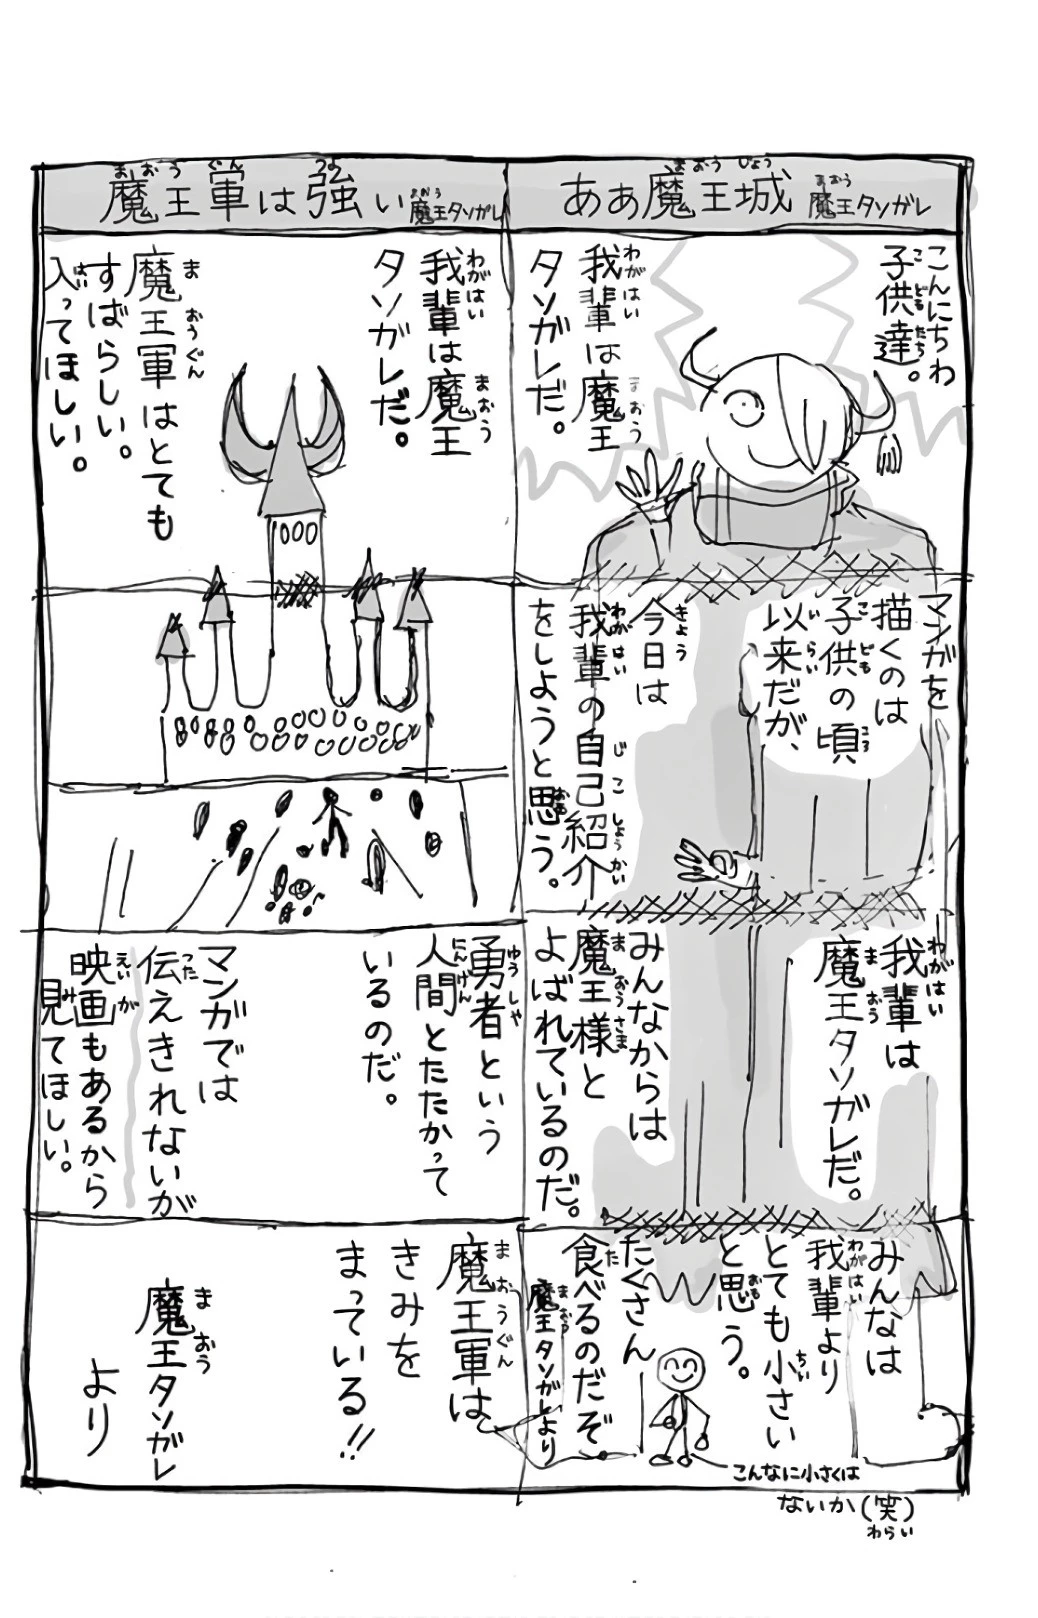 ああ魔王城 魔王タソガレ
こんにちわ
子供達。
我輩は魔王
タソガレだ。
マンガを
描くのは
子供の頃
以来だが、
今日は
我輩の自己紹介
をしようと思う。
我輩は
魔王タソガレだ。
みんなからは
魔王様と
よばれているのだ。
みんなは
我輩より
とても小さい
と思う。
たくさん
食べるのだぞ
魔王タソガレより
こんなに小さくは
ないか(笑)
魔王軍は強い 魔王タソガレ
我輩は魔王
タソガレだ。
魔王軍はとても
すばらしい。
入ってほしい。
勇者という
人間とたたかって
いるのだ。
マンガでは
伝えきれないが
映画もあるから
見てほしい。
魔王軍は
きみを
まっている!!
魔王タソガレ
より